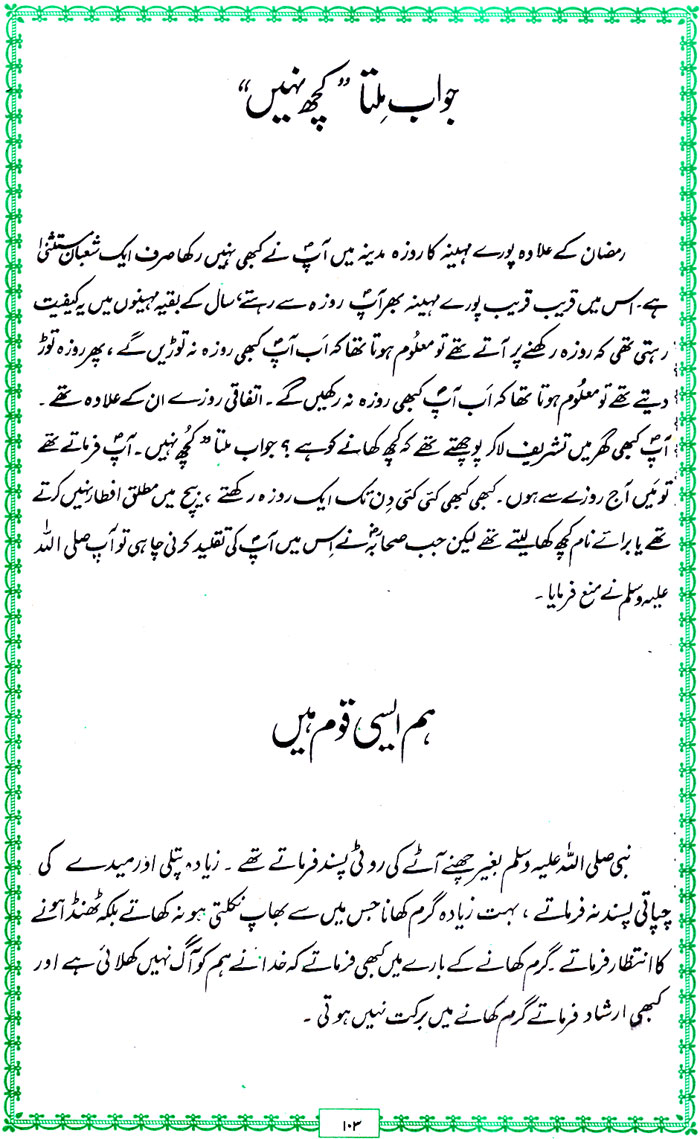 جواب مِلتا ”کچھ نہیں“
رمضان کے علاوہ پورے مہینہ کا روزہ مدینہ میں آپؐ نے کبھی نہیں رکھا صرف ایک شعبان مستثنیٰ
ہے۔ اس میں قریب قریب پورے مہینہ بھر آپؐ روزہ سے رہتے، سال کے بقیہ مہینوں میں یہ کیفیت
رہتی تھی کہ روزہ رکھنے پر آتے تھے تو معلوم ہوتا تھا کہ اَب آپؐ کبھی روزہ نہ توڑیں گے، پھر روزہ توڑ
دیتے تھے تو معلوم ہوتا تھا کہ اَب آپؐ کبھی روزہ نہ رکھیں گے۔ اتفاقی روزے ان کے علاوہ تھے۔
آپؐ کبھی گھر میں تشریف لا کر پوچھتے تھے کہ کچھ کھانے کو ہے؟ جواب ملتا ”کچُھ نہیں۔ آپؐ فرماتے تھے
تو مَیں آج روزے سے ہوں۔ کبھی کبھی کئی کئی دِن تک ایک روزہ رکھتے، بیچ میں مطلق افطار نہیں کرتے
تھے یا برائے نام کچھ کھا لیتے تھے لیکن جب صحابہؓ نے اِس میں آپؐ کی تقلید کرنی چاہی تو آپ صلی اللہ
علیہ وسلم نے منع فرمایا۔
ہم ایسی قوم ہیں
نبی صلی اللہ علیہ وسلم بغیر چھنے آٹے کی روٹی پسند فرماتے تھے۔ زیادہ پتلی اور میدے کی
چپاتی پسند نہ فرماتے، بہت زیادہ گرم کھانا جس میں سے بھاپ نکلتی ہو نہ کھاتے بلکہ ٹھنڈا ہونے
کا انتظار فرماتے۔ گرم کھانے کے بارے میں کبھی فرماتے کہ خدا نے ہم کو آگ نہیں کھلائی ہے اور
کبھی ارشاد فرماتے گرم کھانے میں برکت نہیں ہوتی۔
۱۰۳